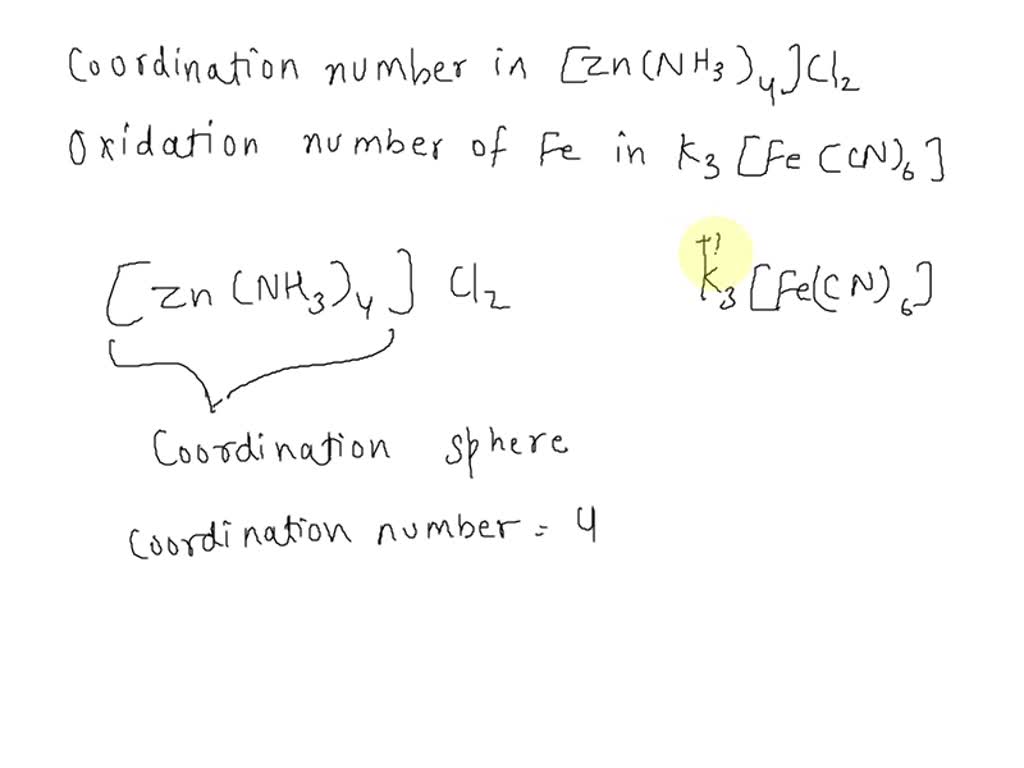 Coordination number in [Zn(NH3)4]Cl2
Oxidation number of Fe in K3[Fe(CN)6]
[Zn(NH3)4]Cl2
+?
K3[Fe(CN)6]
Coordination sphere
Coordination number = 4